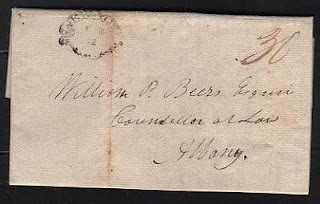 30
William P. Beers Esquire
Counsellor at Law
Albany.